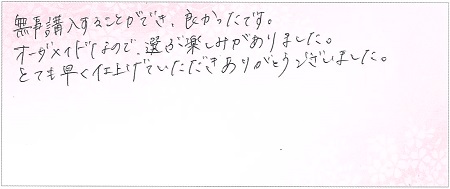 無事購入することができ、良かったです。
オーダメイドなので、選ぶ楽しみがありました。
とても早く仕上げていただきありがとうございました。